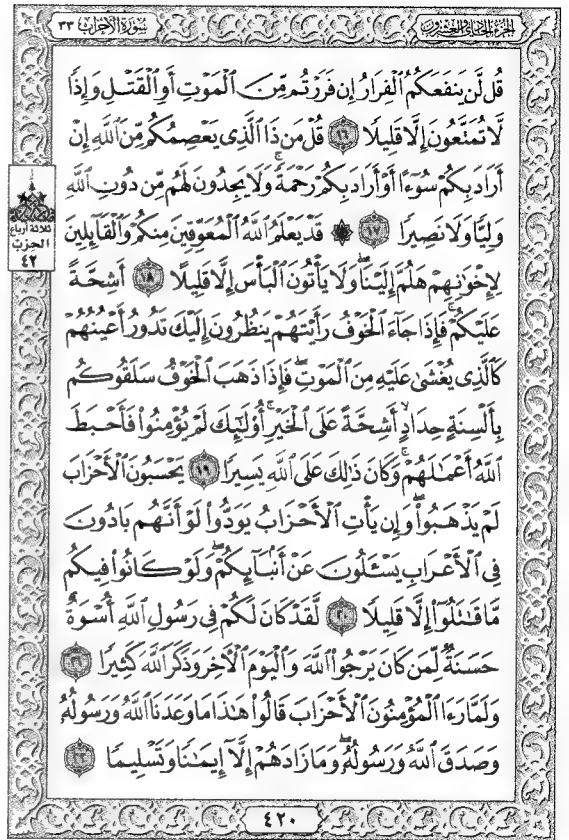 سورة الأحزاب ٣٣
الجزء الحادي والعشرون
قُل لَّن يَنفَعَكُمُ ٱلْفِرَارُ إِن فَرَرْتُم مِّنَ ٱلْمَوْتِ أَوِ ٱلْقَتْلِ وَإِذًا
لَّا تُمَتَّعُونَ إِلَّا قَلِيلًا ١٦ قُلْ مَن ذَا ٱلَّذِى يَعْصِمُكُم مِّنَ ٱللَّهِ إِنْ
أَرَادَ بِكُمْ سُوٓءًا أَوْ أَرَادَ بِكُمْ رَحْمَةً ۚ وَلَا يَجِدُونَ لَهُم مِّن دُونِ ٱللَّهِ
وَلِيًّا وَلَا نَصِيرًا ١٧ ۞ قَدْ يَعْلَمُ ٱللَّهُ ٱلْمُعَوِّقِينَ مِنكُمْ وَٱلْقَآئِلِينَ
لِإِخْوَٰنِهِمْ هَلُمَّ إِلَيْنَا ۖ وَلَا يَأْتُونَ ٱلْبَأْسَ إِلَّا قَلِيلًا ١٨ أَشِحَّةً
عَلَيْكُمْ ۖ فَإِذَا جَآءَ ٱلْخَوْفُ رَأَيْتَهُمْ يَنظُرُونَ إِلَيْكَ تَدُورُ أَعْيُنُهُمْ
كَٱلَّذِى يُغْشَىٰ عَلَيْهِ مِنَ ٱلْمَوْتِ ۖ فَإِذَا ذَهَبَ ٱلْخَوْفُ سَلَقُوكُم
بِأَلْسِنَةٍ حِدَادٍ أَشِحَّةً عَلَى ٱلْخَيْرِ ۚ أُو۟لَٰٓئِكَ لَمْ يُؤْمِنُوا۟ فَأَحْبَطَ
ٱللَّهُ أَعْمَٰلَهُمْ ۚ وَكَانَ ذَٰلِكَ عَلَى ٱللَّهِ يَسِيرًا ١٩ يَحْسَبُونَ ٱلْأَحْزَابَ
لَمْ يَذْهَبُوا۟ ۖ وَإِن يَأْتِ ٱلْأَحْزَابُ يَوَدُّوا۟ لَوْ أَنَّهُم بَادُونَ
فِى ٱلْأَعْرَابِ يَسْـَٔلُونَ عَنْ أَنۢبَآئِكُمْ ۖ وَلَوْ كَانُوا۟ فِيكُم
مَّا قَٰتَلُوٓا۟ إِلَّا قَلِيلًا ٢٠ لَّقَدْ كَانَ لَكُمْ فِى رَسُولِ ٱللَّهِ أُسْوَةٌ
حَسَنَةٌ لِّمَن كَانَ يَرْجُوا۟ ٱللَّهَ وَٱلْيَوْمَ ٱلْءَاخِرَ وَذَكَرَ ٱللَّهَ كَثِيرًا ٢١
وَلَمَّا رَءَا ٱلْمُؤْمِنُونَ ٱلْأَحْزَابَ قَالُوا۟ هَٰذَا مَا وَعَدَنَا ٱللَّهُ وَرَسُولُهُۥ
وَصَدَقَ ٱللَّهُ وَرَسُولُهُۥ ۚ وَمَا زَادَهُمْ إِلَّآ إِيمَٰنًا وَتَسْلِيمًا ٢٢
ثلاثة أرباع
الحزب
٤٢
٤٢٠